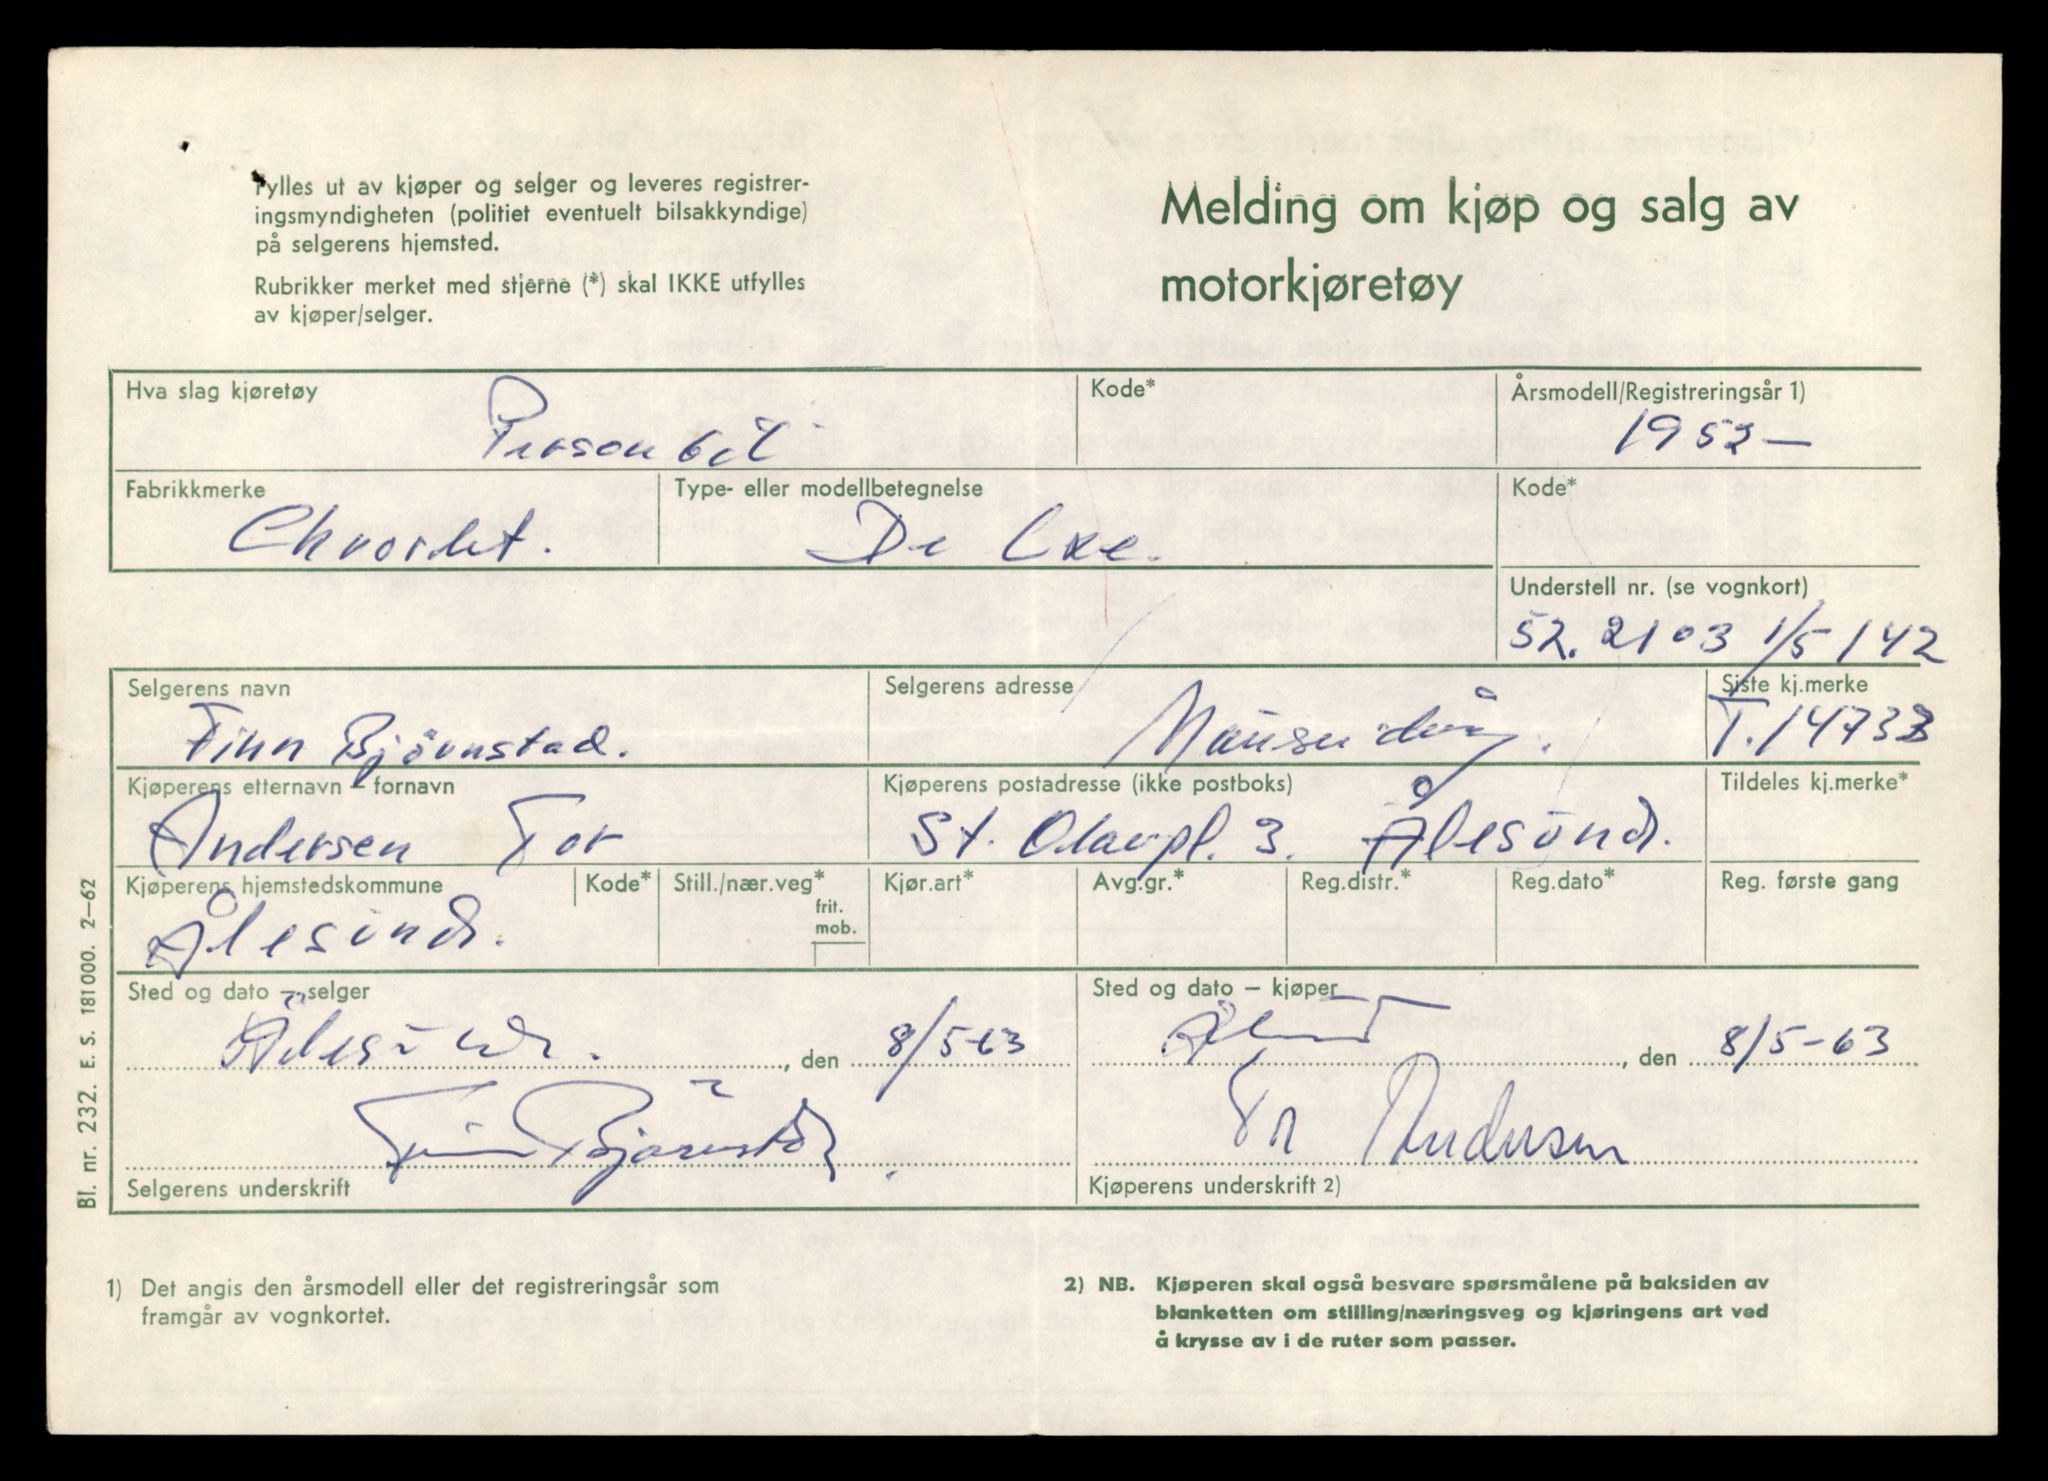 Fylles ut av kjøper og selger og leveres registrer-
ingsmyndigheten (politiet eventuelt bilsakkyndige)
på selgerens hjemsted.
Rubrikker merket med stjerne (*) skal IKKE utfylles
av kjøper/selger.
Melding om kjøp og salg av
motorkjøretøy
Hva slag kjøretøy
Personbil
Kode*
Årsmodell/Registreringsår 1)
1952 –
Fabrikkmerke
Chvorlet.
Type- eller modellbetegnelse
De Lxe.
Kode*
Understell nr. (se vognkort)
52. 2103 1/5 142
Selgerens navn
Finn Bjørnstad.
Selgerens adresse
Siste kj.merke
T. 14733
Kjøperens etternavn – fornavn
Andersen Tor
Kjøperens postadresse (ikke postboks)
St. Olavpl. 3. Ålesund.
Tildeles kj.merke*
Kjøperens hjemstedskommune
Ålesund.
Kode*
Still./nær.veg*
frit.
mob.
Kjør.art*
Avg.gr.*
Reg.distr.*
Reg.dato*
Reg. første gang
Sted og dato – selger
Ålesund. , den 8/5-63
Finn Bjørnstad.
Selgerens underskrift
Sted og dato – kjøper
Ålesund , den 8/5-63
Tor Andersen
Kjøperens underskrift 2)
Bl. nr. 232. E. S. 181000. 2–62
1) Det angis den årsmodell eller det registreringsår som
framgår av vognkortet.
2) NB. Kjøperen skal også besvare spørsmålene på baksiden av
blanketten om stilling/næringsveg og kjøringens art ved
å krysse av i de ruter som passer.